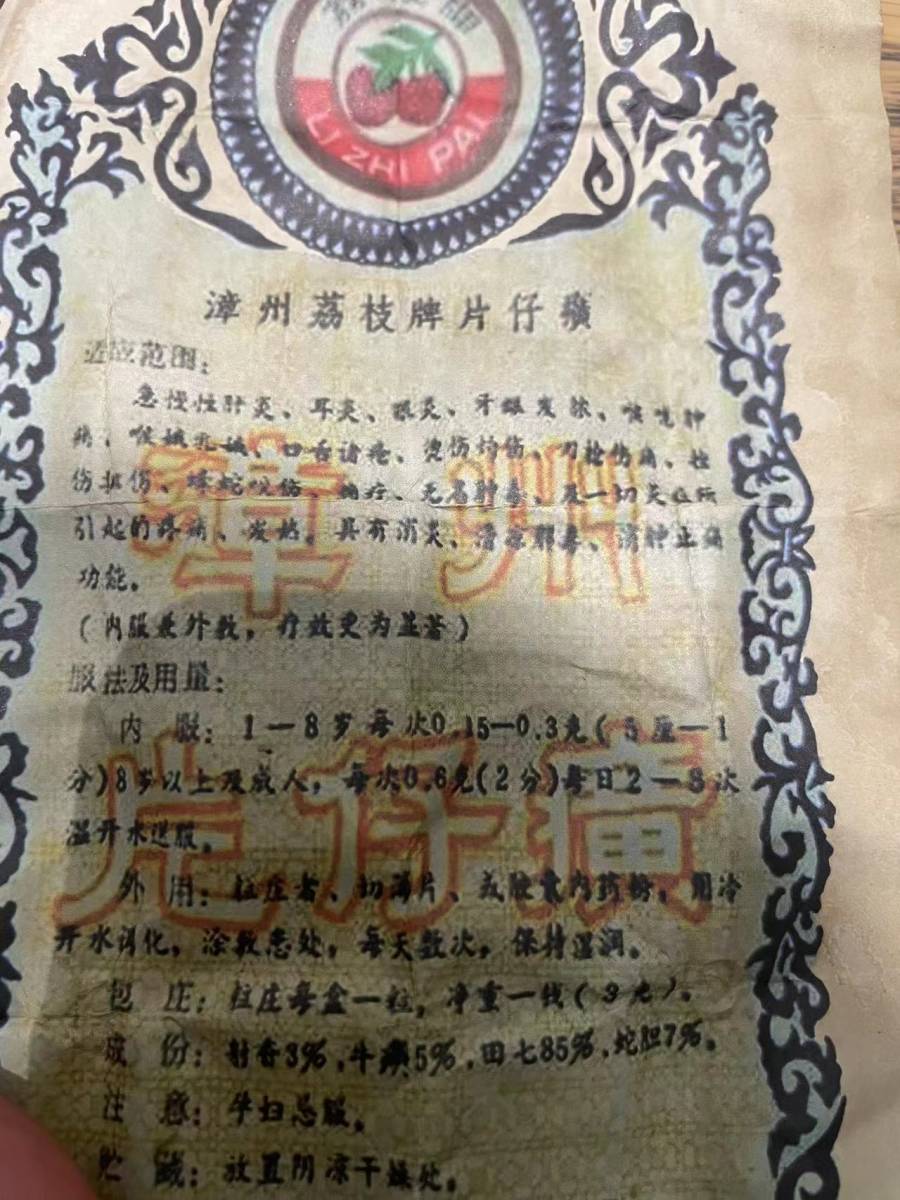 荔枝牌
LI ZHI PAI
漳州荔枝牌片仔癀
适应范围:
急慢性肝炎、耳炎、眼炎、牙龈发脓、喉咙肿
痛、喉蛾乳蛾、口舌诸疮、烫伤灼伤、刀枪伤痛、
伤 伤、蜂蛇咬伤、 疔、无名肿毒、及一切炎症所
引起的疼痛、发热。具有消炎、清凉解毒、消肿止痛
功能。
(内服兼外敷,疗效更为显著)
服法及用量:
内 服: 1—8岁每次0.15—0.3克(5厘—1
分)8岁以上及成人,每次0.6克(2分)每日2—3次
温开水送服。
外 用: 粒庄者、切薄片、或胶囊内药粉,用冷
开水调化,涂敷患处,每天数次,保持湿润。
包 庄: 粒庄每盒一粒,净重一钱(3克)。
成 份: 射香3%,牛癀5%,田七85%,蛇胆7%。
注 意: 孕妇忌服。
贮 藏: 放置阴凉干燥处。
漳州
片仔癀